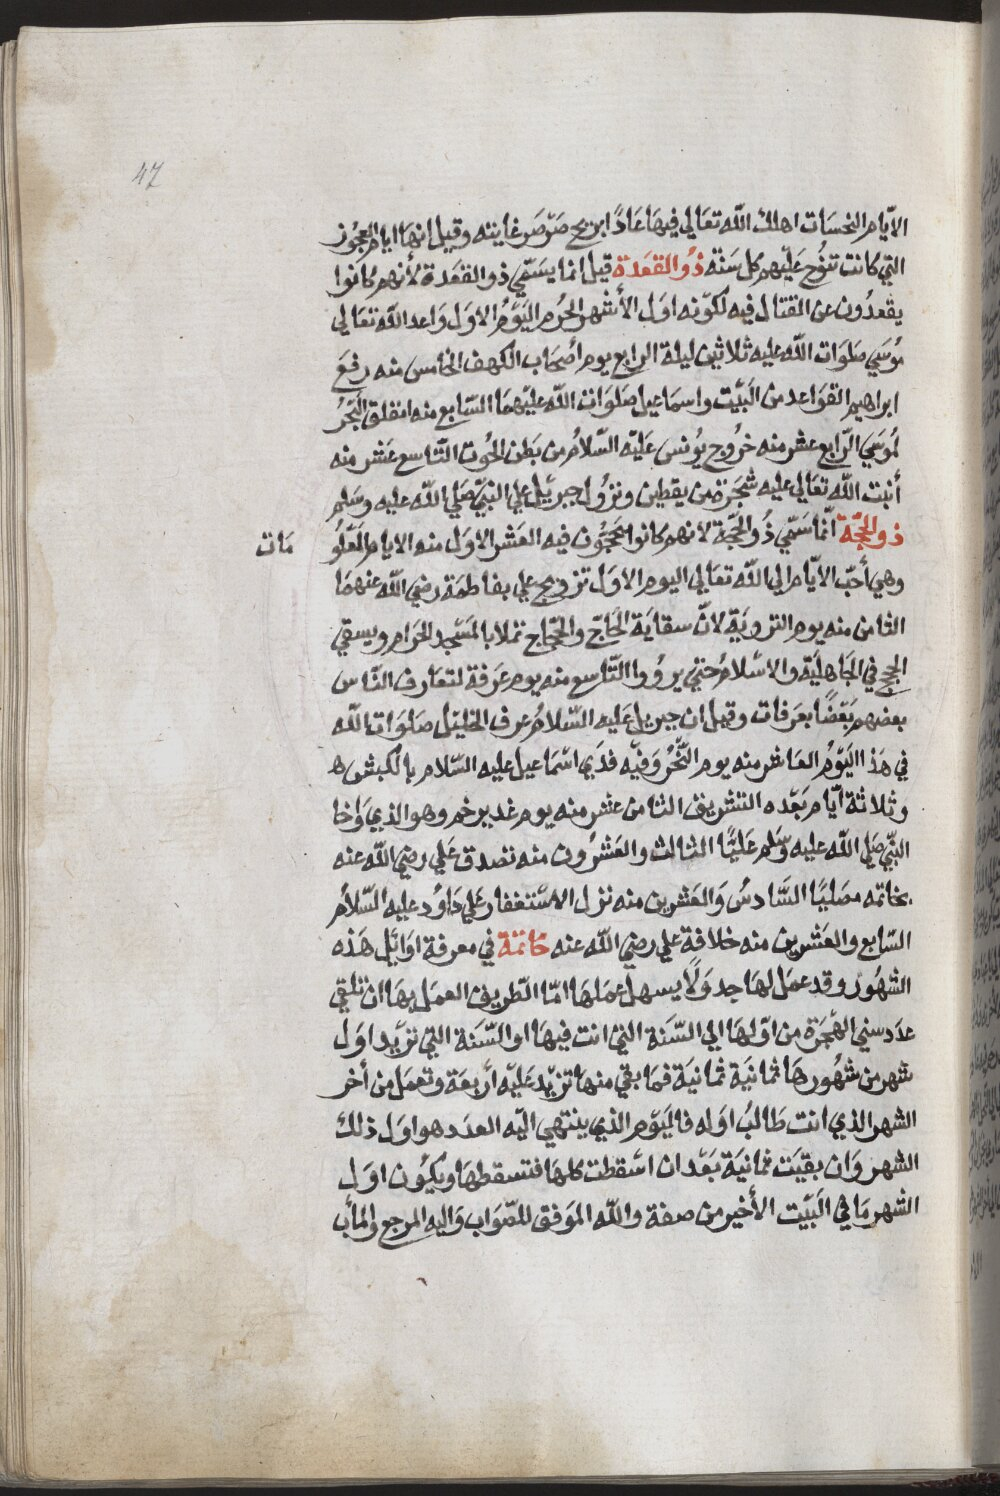 47
الأيام النحسات اهلك الله تعالي فيها عادًا بريح صرصر عاتيه وقيل انها ايام العجوز
التي كانت تنوح عليهم كل سنة ذو القعدة قيل انما يسمي ذو القعدة لأنهم كانوا
يقعدون عن القتال فيه لكونه اول الأشهر الحرم اليوم الاول واعد الله تعالي
موسي صلوات الله عليه ثلاثين ليلة الرابع يوم أصحاب الكهف الخامس منه رفع
ابراهيم القواعد من البيت واسماعيل صلوات الله عليهما السابع منه انفلق البحر
لموسي الرابع عشر منه خروج يونس عليه السلام من بطن الحوت التاسع عشر منه
أنبت الله تعالي عليه شجرة من يقطين ونزول جبريل علي النبي صلي الله عليه وسلم
ذو الحجة انما سمي ذو الحجة لانهم كانوا يحجون فيه العشر الاول منه الايام المعلو
مات
وهي أحب الأيام الي الله تعالي اليوم الاول تزويج علي بفاطمة رضي الله عنهما
الثامن منه يوم التروية لان سقاية الحاج والحجاج تملا بالمسجد الحرام ويسقي
الحج في الجاهلية والاسلام حتي يرووا التاسع منه يوم عرفة لتعارف الناس
بعضهم بعضًا بعرفات وقيل ان جبريل عليه السلام عرف الخليل صلوات الله
في هذا اليوم العاشر منه يوم النحر وفيه فدي اسماعيل عليه السلام بالكبش ه
وثلاثة أيام بعده التشريق الثامن عشر منه يوم غدير خم وهو الذي واخا
النبي صلي الله عليه وسلم عليًا الثالث والعشرون منه تصدق علي رضي الله عنه
بخاتمه مصليًا السادس والعشرين منه نزل الاستغفار علي داود عليه السلام
السابع والعشرين منه خلافة علي رضي الله عنه خاتمة في معرفة اوايل هذه
الشهور وقد عمل لها جدولًا يسهل عملها امّا الطريق العمل بها ان تلقي
عدد سني الهجرة من اولها الي السنة التي انت فيها او السنة التي تريد اول
شهر من شهورها ثمانية ثمانية فما بقي منها تزيد عليه أربعة وتعمل من أخر
الشهر الذي انت طالب اوله فاليوم الذي ينتهي اليه العدد هو اول ذلك
الشهر وان بقيت ثمانية بعد ان اسقطت كلها فتسقطها ويكون اول
الشهر ما في البيت الأخير من صفة والله الموفق للصواب واليه المرجع والمأب